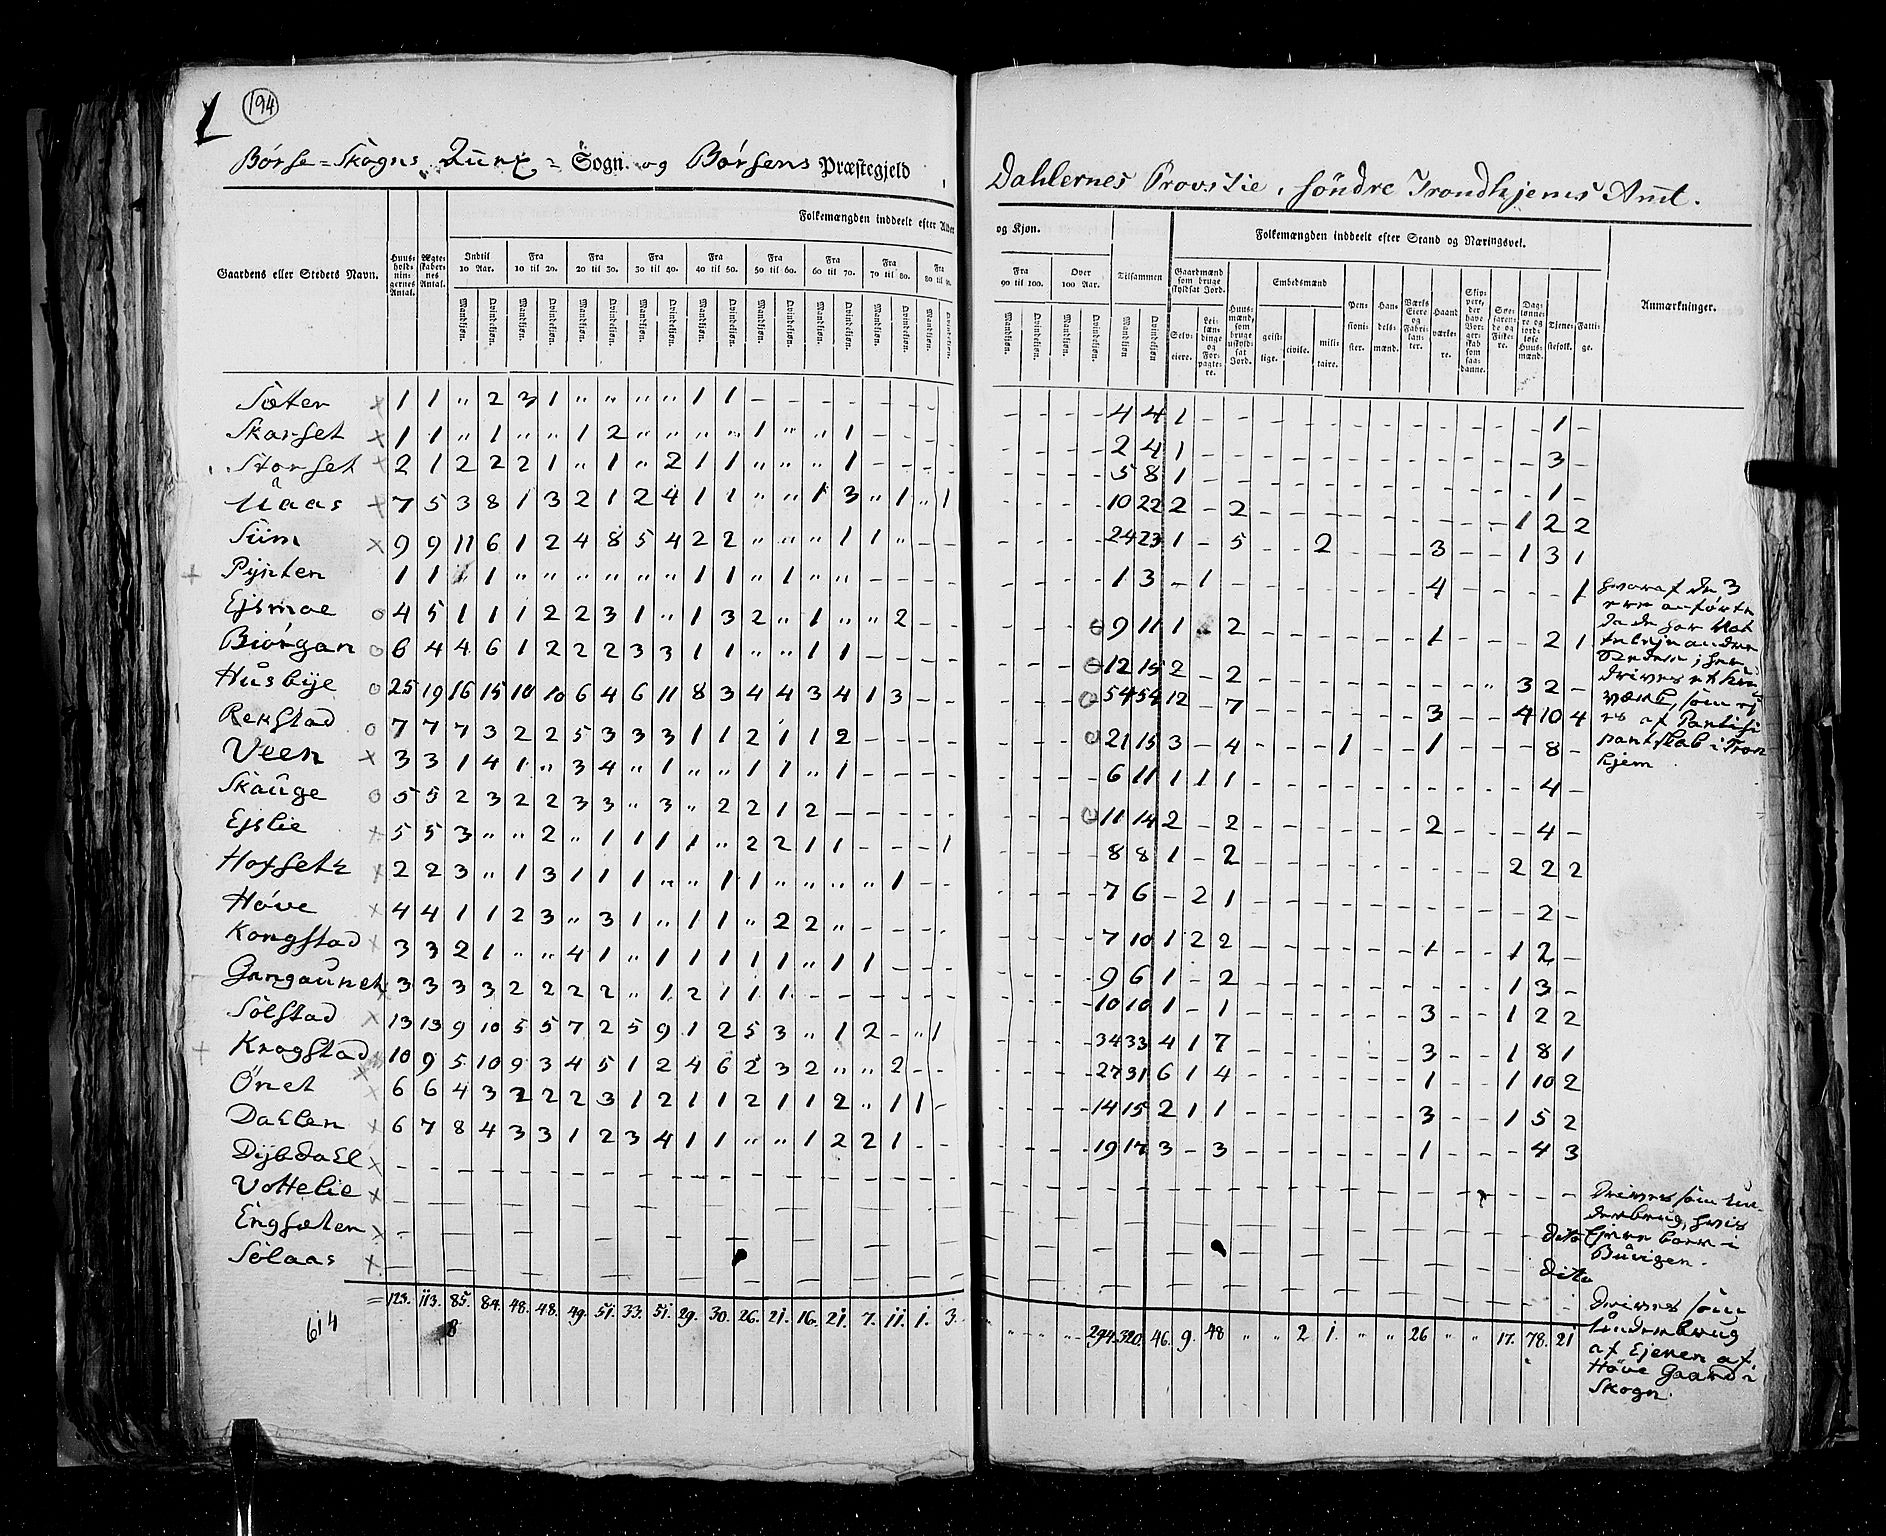 194
Børse-Skogns Annex Sogn og Børsens Præstegjeld,
Dahlernes Provstie, Søndre Trondhjems Amt.
Folkemængden inddeelt efter Alder
og Kjøn.
Folkemængden inddeelt efter Stand og Næringsvei.
Gaardens eller Stedets Navn. Huusholdningernes Antal. Ægteskabernes Antal. Indtil 10 Aar. Fra 10 til 20. Fra 20 til 30. Fra 30 til 40. Fra 40 til 50. Fra 50 til 60. Fra 60 til 70. Fra 70 til 80. Fra 80 til 90.
Fra 90 til 100. Over 100 Aar. Tilsammen Gaardmænd som bruge skyldsat Jord. Huusmænd, som bruge uskyldsat Jord. Embedsmænd Pensionister. Handelsmænd. Værks Eiere og Fabrikanter. Haandværkere. Skippere, der have Borgerskab som saadanne. Søefarende og Fiskere. Dagslønnere og jordløse Huusmænd. Tjenestefolk. Fattige. Anmærkninger.
Mandkjøn. Qvindekjøn.
Selveiere. Leilændinge og Forpagtere. geistlige. civile. militaire.
Sæter × 1 1 " 2 3 1 " " " " 1 1 - - - - - - - - - - - - 4 4 1 - - - - - - - - - - - - 1 -
Skarset × 1 1 " 1 " " 1 2 " " " " 1 " " 1 - - - - - - - - 2 4 1 - - - - - - - - - - - - 3 -
Storset × 2 1 2 2 2 1 " 1 " 2 1 1 " " " 1 - - - - - - - - 5 8 1 - - - - - - - - - - - - 1 -
Uaas × 7 5 3 8 1 3 2 1 2 4 1 1 " " 1 3 " 1 " 1 - - - - 10 22 2 - 2 - - - - - - - - - 1 2 2
Siim × 9 9 11 6 1 2 4 8 5 4 2 2 " " " 1 1 " - - - - - - 24 23 1 - 5 - - 2 - - - 3 - - 1 3 1
Pynten 1 1 1 1 " " " " " " 1 1 " 1 " " - - - - - - - - 1 3 - 1 - - - - - - - 4 - - - - 1
Ejsmoe o 4 5 1 1 1 2 2 3 1 " 1 3 2 " 1 " " 2 - - - - - - 9 11 1 " 2 - - - - - - 1 - - - 2 1
Biörgan o 6 4 4 6 1 2 2 2 3 3 1 1 " " 1 1 - - - - - - - - 12 15 2 - 2 - - - - - - - - " 3 2 -
Husbye o 25 19 16 15 10 10 6 4 6 11 8 3 4 4 3 4 1 3 - - - - - - 54 54 12 - 7 - - - - - - 3 - - 4 10 4
Rekstad o 7 7 7 3 2 2 5 3 3 3 1 1 2 1 1 2 - - - - - - - - 21 15 3 - 4 - - - 1 - - 1 - - - 8 -
Veen × 3 3 1 4 1 " 3 4 " 1 " " 1 1 " 1 - - - - - - - - 6 11 1 1 1 - - - - - - - - - - 4 -
Skauge o 5 5 2 3 2 2 3 3 " 3 " 2 2 1 2 - - - - - - - - - 11 14 2 - 2 - - - - - - 2 - - - 4 -
Ejslie × 5 5 3 " " 2 " 1 1 1 1 " 2 2 1 1 - - - 1 - - - - 8 8 1 - 2 - - - - - - - - - 2 2 2
Hofset × 2 2 3 " 1 3 1 1 1 " " 1 1 " " " " 1 - - - - - - 7 6 - 2 1 - - - - - - - - - - 2 -
Høve × 4 4 1 1 2 3 " 3 1 " 1 1 " 2 2 " - - - - - - - - 7 10 1 2 2 - - - - - - 1 - - 1 2 -
Kongstad × 3 3 2 1 " " 4 1 " 1 1 1 1 1 " 1 1 - - - - - - - 9 6 1 - 2 - - - - - - - - - 1 3 -
Grngaunet × 3 3 3 3 2 2 2 2 " 1 2 1 1 1 - - - - - - - - - - 10 10 1 - 1 - - - - - - 3 - - 1 2 2
Sølstad × 13 13 9 10 5 5 7 2 5 9 1 2 5 3 " 1 2 - " 1 - - - - 34 33 4 1 7 - - - - - - 3 - - 1 8 1
Krogstad × 10 9 5 10 9 3 4 5 1 2 4 6 2 3 2 " " 2 - - - - - - 27 31 6 1 4 - - - - - - 1 - - 1 10 2
Önet × 6 6 4 3 2 2 2 3 1 2 1 1 2 1 1 2 " 1 1 - - - - - 14 15 2 1 1 - - - - - - 3 - - 1 5 2
Dahlen × 6 7 8 4 3 3 1 2 3 4 1 1 " " 1 2 2 1 - - - - - - 19 17 3 - 3 - - - - - - 1 - - - 4 3
Dybdahl ×
Vottelie ×
Engsæter ×
Sølaas ×
= 123. 113. 85. 84. 48. 48. 49. 51. 33. 51. 29. 30. 26. 21. 16. 21. 7. 11. 1. 3. " - - " 294. 320. 46. 9. 48 " " 2 1. " " 26 " " 17. 78. 21
614
8
hvoraf de 3
ere anførte
da de har
andre
Steder; her
drives et
værk, som
af
i Tron
hjem
Drives som Un
derbrug, hvis
dito Ejere boer i
Buvigen.
dito
Drives som
Underbrug
af Ejeren af
Høve Gaard i
Skogn.